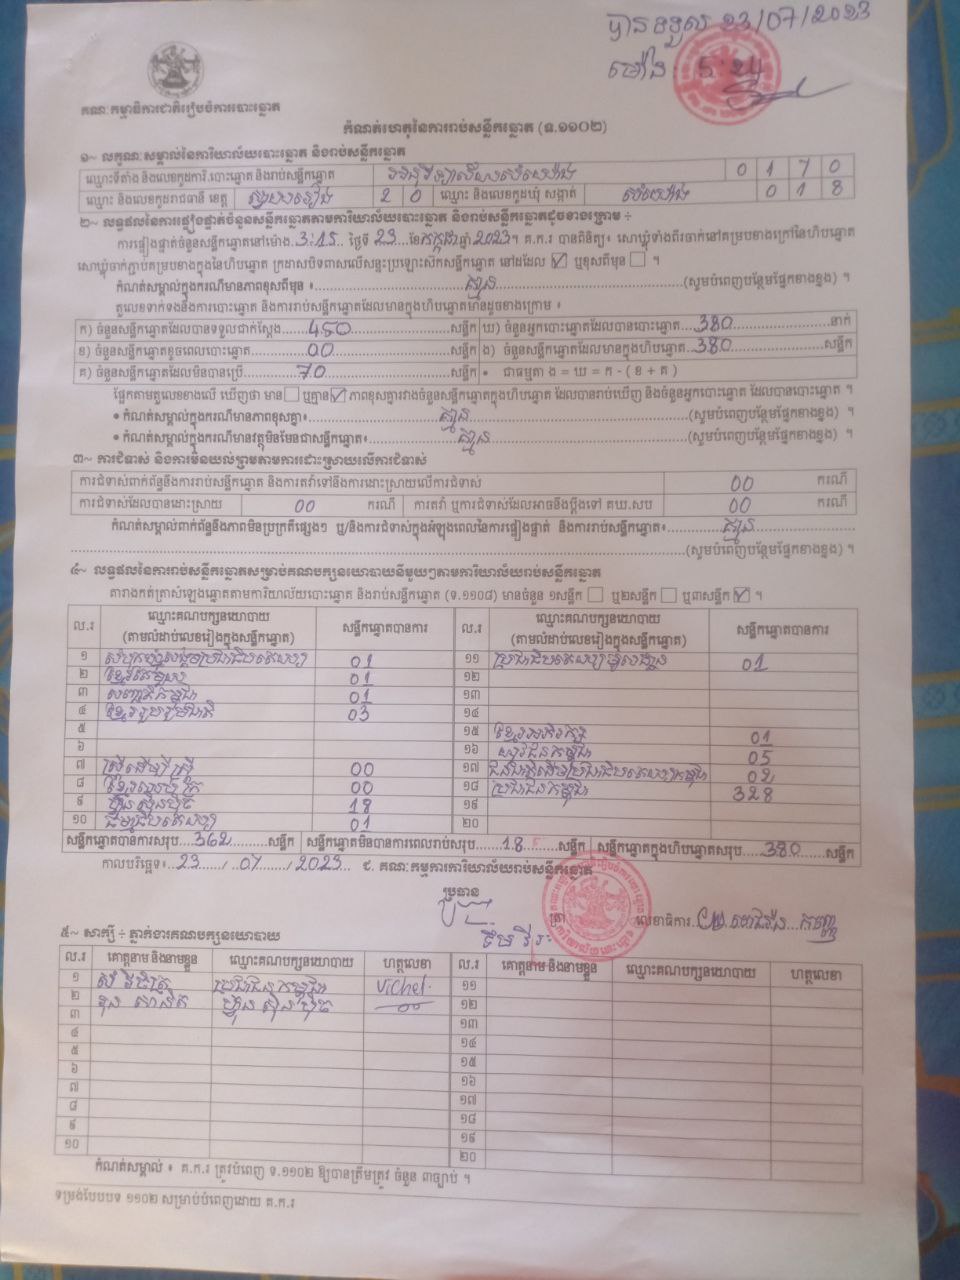 បានទទួល 23/07/2023
ម៉ោង 5:24
គណៈកម្មាធិការជាតិរៀបចំការបោះឆ្នោត
កំណត់ហេតុនៃការរាប់សន្លឹកឆ្នោត (ទ.១១០២)
១~ លក្ខណៈសម្គាល់នៃការិយាល័យបោះឆ្នោត និងរាប់សន្លឹកឆ្នោត
ឈ្មោះទីតាំង និងលេខកូដការិ.បោះឆ្នោត និងរាប់សន្លឹកឆ្នោត 0 1 7 0
ឈ្មោះ និងលេខកូដរាជធានី ខេត្ត ស្វាយរៀង 2 0 ឈ្មោះ និងលេខកូដឃុំ សង្កាត់ 0 1 8
២~ លទ្ធផលនៃការផ្ទៀងផ្ទាត់ចំនួនសន្លឹកឆ្នោតតាមការិយាល័យបោះឆ្នោត និងរាប់សន្លឹកឆ្នោតដូចខាងក្រោម ៖
ការផ្ទៀងផ្ទាត់ចំនួនសន្លឹកឆ្នោតនៅម៉ោង 3:15 ថ្ងៃទី 23 ខែ កក្កដា ឆ្នាំ 2023។ គ.ក.រ បានពិនិត្យ៖ សោឃ្មុំទាំងពីរចាក់នៅគម្របខាងក្រៅនៃហិបឆ្នោត
សោឃ្មុំចាក់ភ្ជាប់គម្របខាងក្នុងនៃហិបឆ្នោត ក្រដាសបិទពាសលើសន្ទះប្រឡោះស៊កសន្លឹកឆ្នោត នៅដដែល ☑ ឬខុសពីមុន ☐ ។
កំណត់សម្គាល់ក្នុងករណីមានភាពខុសពីមុន ៖ គ្មាន (សូមបំពេញបន្ថែមផ្នែកខាងខ្នង) ។
តួលេខទាក់ទងនឹងការបោះឆ្នោត និងការរាប់សន្លឹកឆ្នោតដែលមានក្នុងហិបឆ្នោតមានដូចខាងក្រោម ៖
ក) ចំនួនសន្លឹកឆ្នោតដែលបានទទួលជាក់ស្តែង 450 សន្លឹក ឃ) ចំនួនអ្នកបោះឆ្នោតដែលបានបោះឆ្នោត 380 នាក់
ខ) ចំនួនសន្លឹកឆ្នោតខូចពេលបោះឆ្នោត 00 សន្លឹក ង) ចំនួនសន្លឹកឆ្នោតដែលមានក្នុងហិបឆ្នោត 380 សន្លឹក
គ) ចំនួនសន្លឹកឆ្នោតដែលមិនបានប្រើ 70 សន្លឹក • ជាធម្មតា ង = ឃ = ក - ( ខ + គ )
ផ្អែកតាមតួលេខខាងលើ ឃើញថា មាន ☐ ឬគ្មាន ☑ ភាពខុសគ្នារវាងចំនួនសន្លឹកឆ្នោតក្នុងហិបឆ្នោត ដែលបានរាប់ឃើញ និងចំនួនអ្នកបោះឆ្នោត ដែលបានបោះឆ្នោត ។
• កំណត់សម្គាល់ក្នុងករណីមានភាពខុសគ្នា៖ គ្មាន (សូមបំពេញបន្ថែមផ្នែកខាងខ្នង) ។
• កំណត់សម្គាល់ក្នុងករណីមានវត្ថុមិនមែនជាសន្លឹកឆ្នោត៖ គ្មាន (សូមបំពេញបន្ថែមផ្នែកខាងខ្នង) ។
៣~ ការជំទាស់ និងការមិនយល់ព្រមតាមការដោះស្រាយលើការជំទាស់
ការជំទាស់ពាក់ព័ន្ធនឹងការរាប់សន្លឹកឆ្នោត និងការតវ៉ាទៅនឹងការដោះស្រាយលើការជំទាស់ 00 ករណី
ការជំទាស់ដែលបានដោះស្រាយ 00 ករណី ការតវ៉ា ឬការជំទាស់ដែលអាចនឹងប្តឹងទៅ គឃ.សប 00 ករណី
កំណត់សម្គាល់ពាក់ព័ន្ធនឹងភាពមិនប្រក្រតីផ្សេងៗ ឬ/និងការជំទាស់ក្នុងអំឡុងពេលនៃការផ្ទៀងផ្ទាត់ និងការរាប់សន្លឹកឆ្នោត៖ គ្មាន
(សូមបំពេញបន្ថែមផ្នែកខាងខ្នង) ។
៤~ លទ្ធផលនៃការរាប់សន្លឹកឆ្នោតសម្រាប់គណបក្សនយោបាយនីមួយៗតាមការិយាល័យរាប់សន្លឹកឆ្នោត
តារាងកត់ត្រាសំឡេងឆ្នោតតាមការិយាល័យបោះឆ្នោត និងរាប់សន្លឹកឆ្នោត (ទ.១១០៨) មានចំនួន ១សន្លឹក ☐ ឬ២សន្លឹក ☐ ឬ៣សន្លឹក ☑ ។
ល.រ ឈ្មោះគណបក្សនយោបាយ (តាមលំដាប់លេខរៀងក្នុងសន្លឹកឆ្នោត) សន្លឹកឆ្នោតបានការ ល.រ ឈ្មោះគណបក្សនយោបាយ (តាមលំដាប់លេខរៀងក្នុងសន្លឹកឆ្នោត) សន្លឹកឆ្នោតបានការ
១ សំបុកឃ្មុំសង្គមប្រជាធិបតេយ្យ 01 ១១ ប្រជាធិបតេយ្យមូលដ្ឋាន 01
២ ខ្មែរតែមួយ 01 ១២
៣ សញ្ជាតិកម្ពុជា 01 ១៣
៤ ខ្មែររួបរួមជាតិ 03 ១៤
៥ ១៥ ខ្មែរអភិរក្ស 01
៦ ១៦ យុវជនកម្ពុជា 05
៧ ស្ត្រីដើម្បីស្ត្រី 00 ១៧ ជនជាតិដើមប្រជាធិបតេយ្យកម្ពុជា 02
៨ ខ្មែរឈប់ក្រ 00 ១៨ ប្រជាជនកម្ពុជា 328
៩ ហ្វ៊ុនស៊ិនប៉ិច 18 ១៩
១០ ធម្មាធិបតេយ្យ 01 ២០
សន្លឹកឆ្នោតបានការសរុប 362 សន្លឹក សន្លឹកឆ្នោតមិនបានការពេលរាប់សរុប 18 សន្លឹក សន្លឹកឆ្នោតក្នុងហិបឆ្នោតសរុប 380 សន្លឹក
កាលបរិច្ឆេទ៖ 23 / 07 / 2023 ជ. គណៈកម្មការការិយាល័យរាប់សន្លឹកឆ្នោត
ប្រធាន
ត្រា លេខាធិការ
៥~ សាក្សី ៖ ភ្នាក់ងារគណបក្សនយោបាយ
ល.រ គោត្តនាម និងនាមខ្លួន ឈ្មោះគណបក្សនយោបាយ ហត្ថលេខា ល.រ គោត្តនាម និងនាមខ្លួន ឈ្មោះគណបក្សនយោបាយ ហត្ថលេខា
១ ប្រជាជនកម្ពុជា Vichet ១១
២ ហ្វ៊ុនស៊ិនប៉ិច ១២
៣ ១៣
៤ ១៤
៥ ១៥
៦ ១៦
៧ ១៧
៨ ១៨
៩ ១៩
១០ ២០
កំណត់សម្គាល់ ៖ គ.ក.រ ត្រូវបំពេញ ទ.១១០២ ឱ្យបានត្រឹមត្រូវ ចំនួន ៣ច្បាប់ ។
ទម្រង់បែបបទ ១១០២ សម្រាប់បំពេញដោយ គ.ក.រ